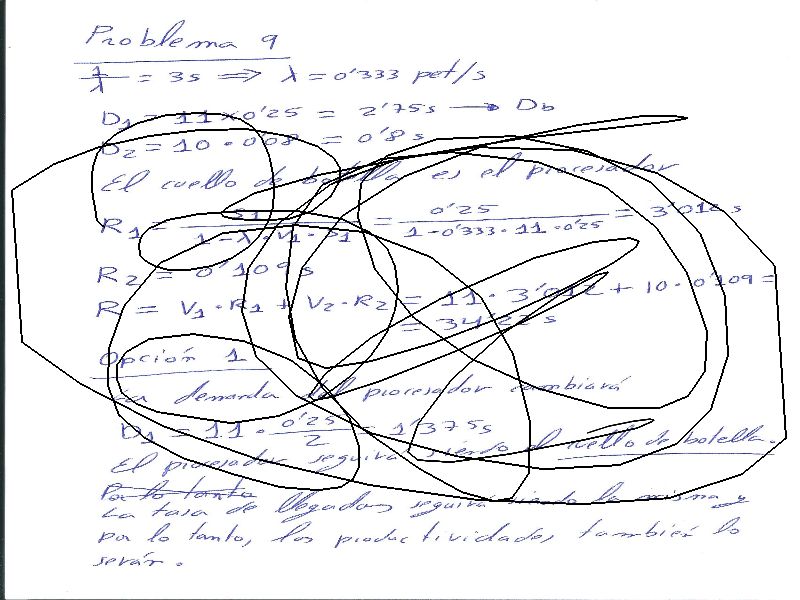 Problema 9
1/λ = 3s ⟹ λ = 0'333 pet/s
D1 = 11 × 0'25 = 2'75s → Db
D2 = 10 · 0'08 = 0'8 s
El cuello de botella es el procesador
R1 = S1 / (1 - λ · V1 · S1) = 0'25 / (1 - 0'333 · 11 · 0'25) = 3'012 s
R2 = 0'109 s
R = V1 · R1 + V2 · R2 = 11 · 3'012 + 10 · 0'109 =
= 34'22 s
Opción 1
La demanda del procesador cambiará
D1 = 11 · 0'25/2 = 1'375s
El procesador seguirá siendo el cuello de botella.
Por lo tanto
La tasa de llegadas seguirá siendo la misma y
por lo tanto, las productividades también lo
serán.